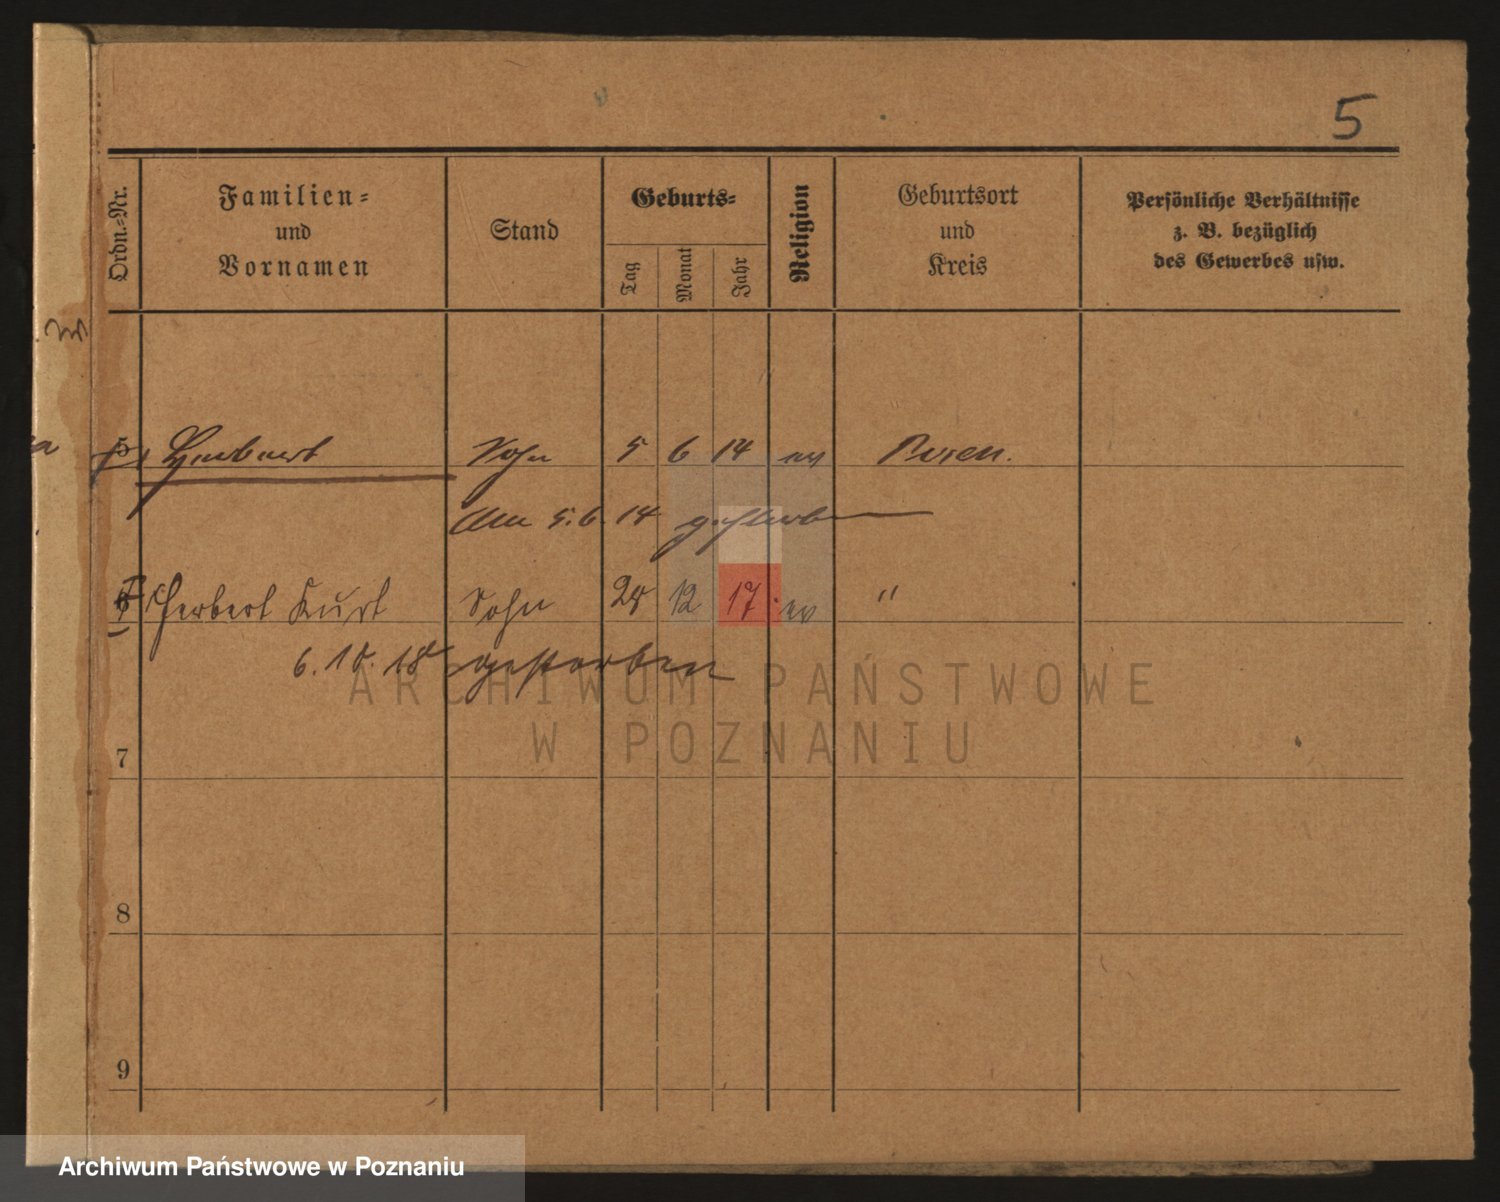 5
Ordn.-Nr.
Familien-
und
Vornamen
Stand
Geburts-
Tag
Monat
Jahr
Religion
Geburtsort
und
Kreis
Persönliche Verhältnisse
z. B. bezüglich
des Gewerbes usw.
5 Herbert Sohn 5 6 14 ev Posen.
Am 5.6.14 gestorben
6 Herbert Kurt Sohn 28 12 17 ev "
6.10.18 gestorben
7
8
9
ARCHIWUM PAŃSTWOWE
W POZNANIU
Archiwum Państwowe w Poznaniu